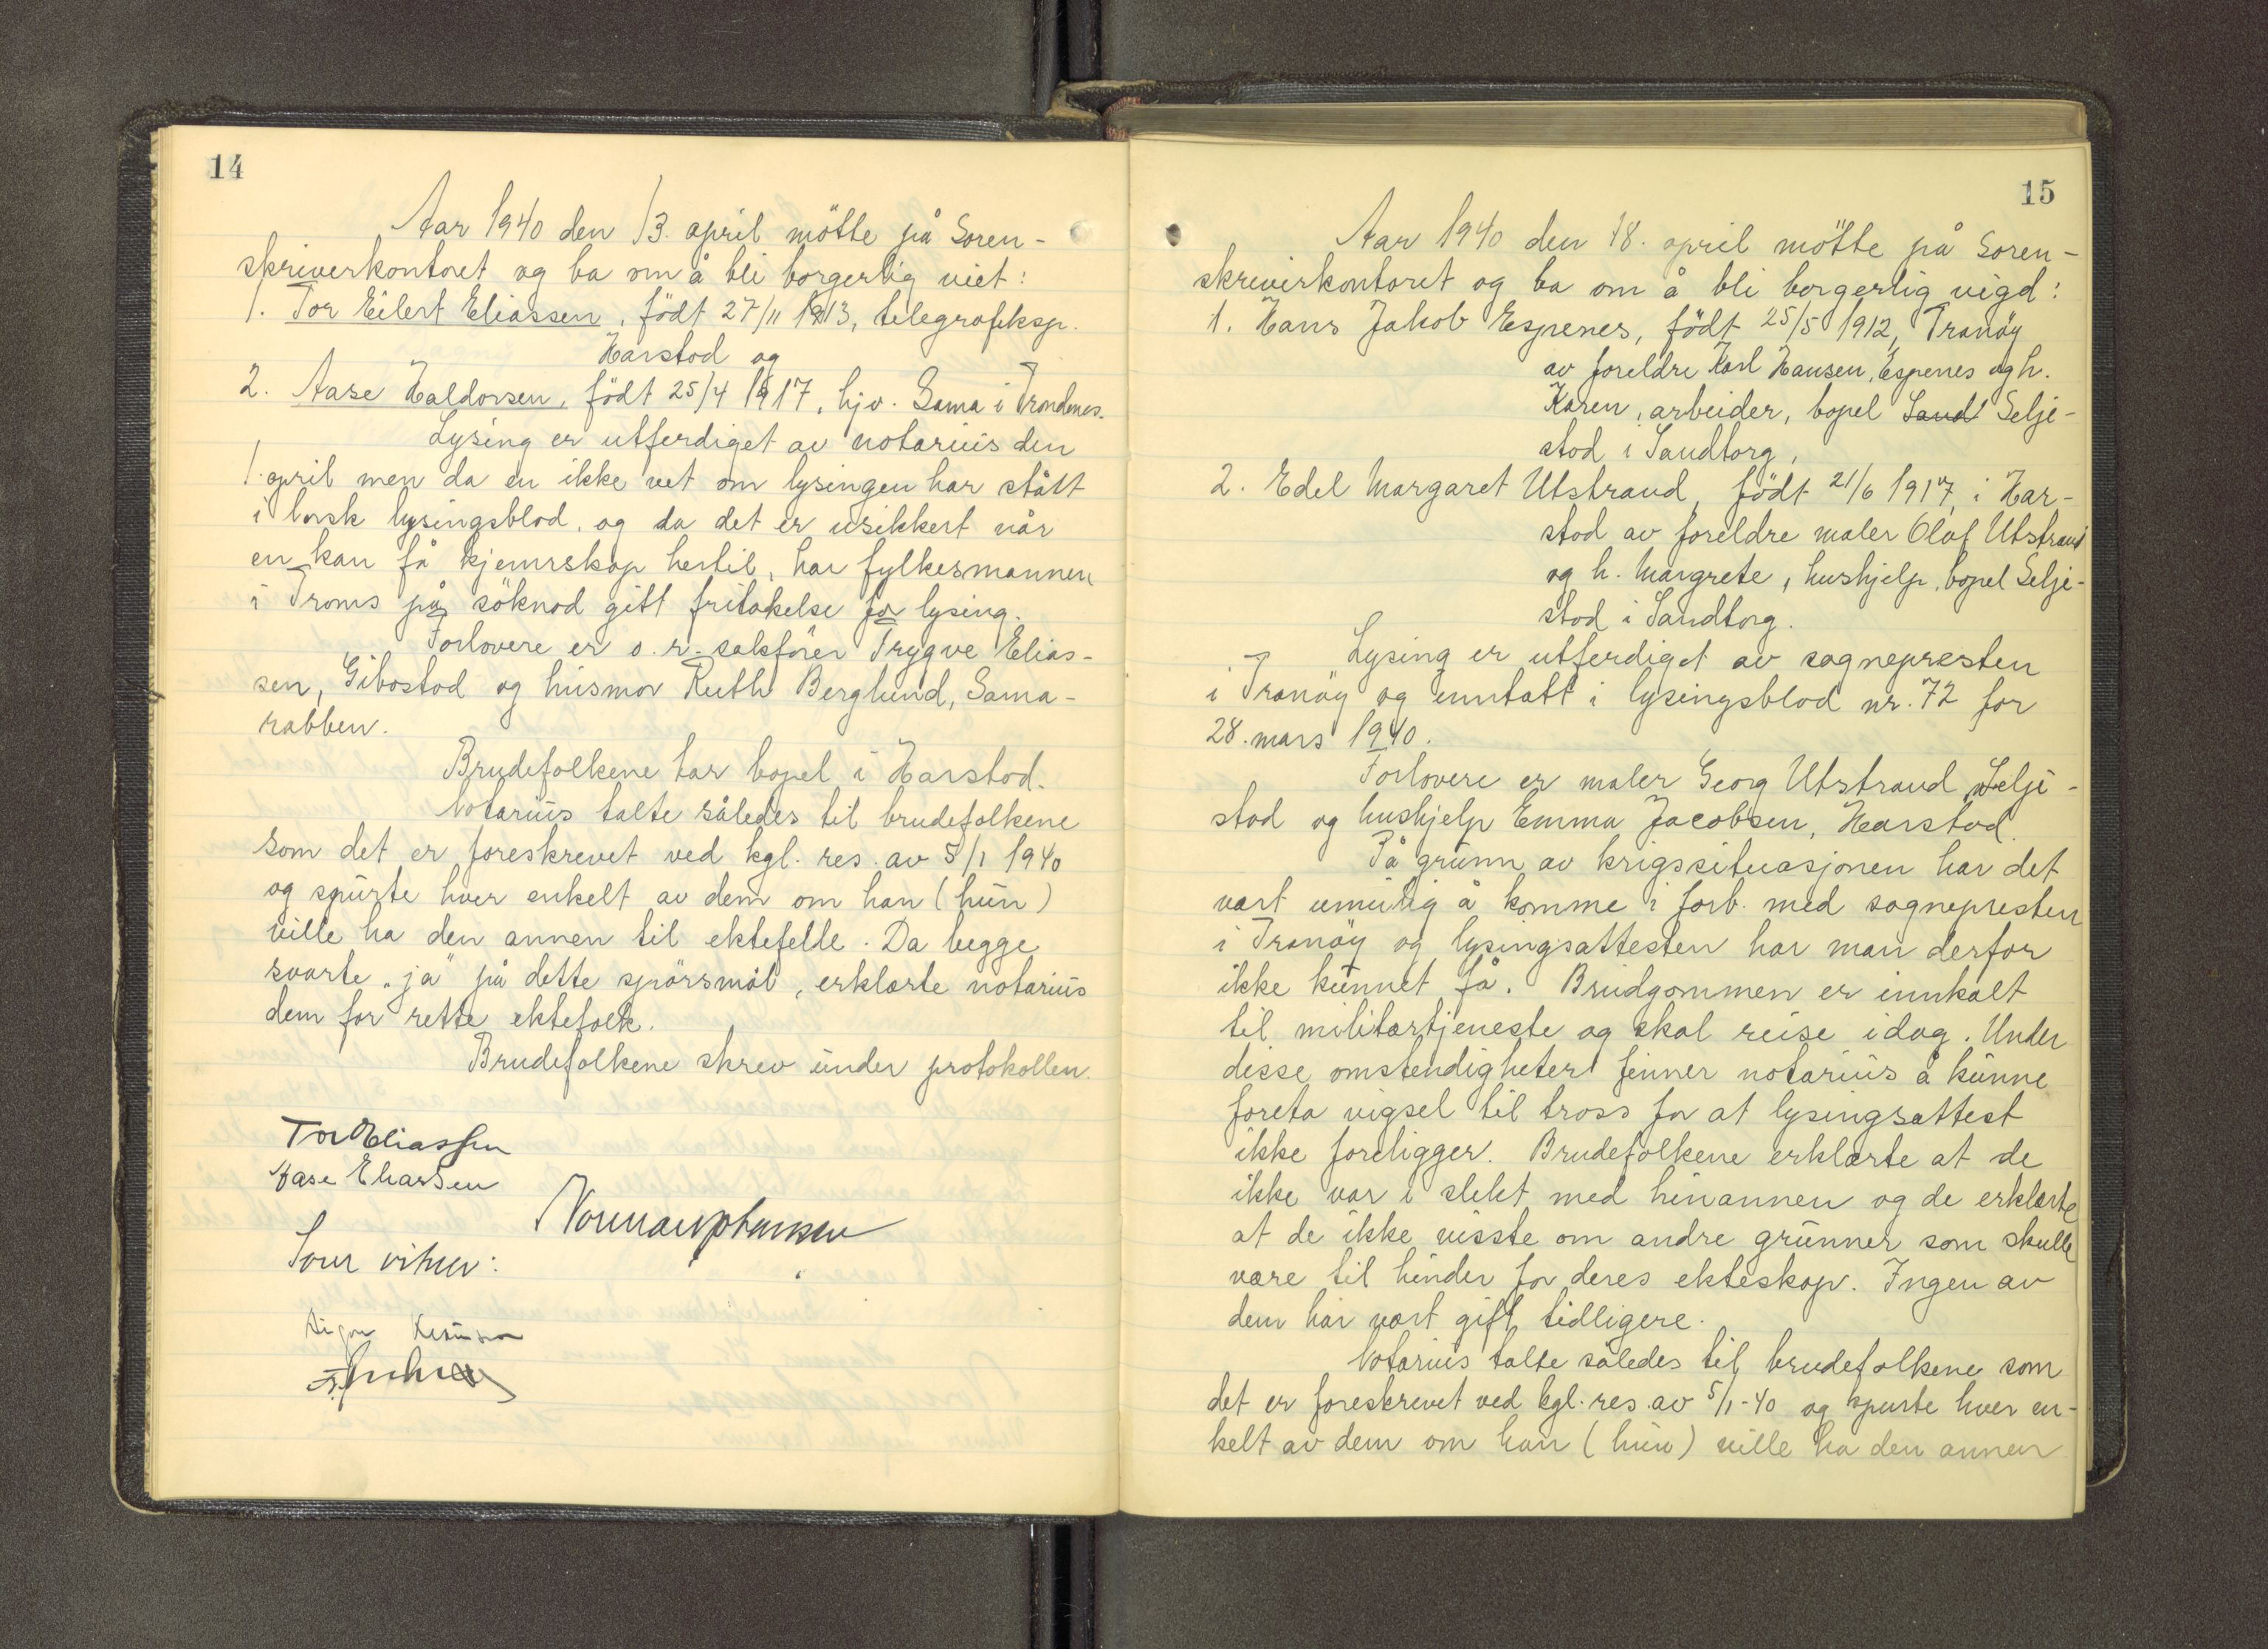 14
Aar 1940 den 13. april mötte på Soren-
skriverkontoret og ba om å bli borgerlig viet:
1. Tor Eilert Eliassen, födt 27/11 1913, telegrafeksp.
Harstad og
2. Aase Haldorsen, födt 25/4 1917, hjv. Sama i Trondenes.
Lysing er utferdiget av notarius den
1. april men da en ikke vet om lysingen har stått
i norsk lysingsblad, og da det er usikkert når
en kan få kjennskap hertil, har fylkesmannen
i Troms på söknad gitt fritakelse for lysing.
Forlovere er o.r. sakförer Trygve Elias-
sen, Gibostad og husmor Ruth Berglund, Sama-
rabben.
Brudefolkene har bopel i Harstad.
Notarius talte således til brudefolkene
som det er foreskrevet ved kgl. res. av 5/1 1940
og spurte hver enkelt av dem om han (hun)
ville ha den annen til ektefelle. Da begge
svarte „ja" på dette spörsmål, erklærte notarius
dem for rette ektefolk.
Brudefolkene skrev under protokollen.
Tor Eliassen
Aase Eliassen
Normann Johansen
Som vitner:
15
Aar 1940 den 18. april mötte på Soren-
skriverkontoret og ba om å bli borgerlig vigd:
1. Hans Jakob Espenes, födt 25/5 1912, Tranöy
av foreldre Karl Hansen, Espenes og h.
Karen, arbeider, bopel Sand Selje-
stad i Sandtorg,
2. Edel Margaret Utstrand, födt 21/6 1917, i Har-
stad av foreldre maler Olaf Utstrand
og h. Margrete, hushjelp, bopel Selje-
stad i Sandtorg.
Lysing er utferdiget av sognepresten
i Tranöy og inntatt i lysingsblad nr. 72 for
28. mars 1940.
Forlovere er maler Georg Utstrand, Selje-
stad og hushjelp Emma Jacobsen, Harstad.
På grunn av krigssituasjonen har det
vært umulig å komme i forb. med sognepresten
i Tranöy og lysingsattesten har man derfor
ikke kunnet få. Brudgommen er innkalt
til militærtjeneste og skal reise idag. Under
disse omstendigheter finner notarius å kunne
foreta vigsel til tross for at lysingsattest
ikke foreligger. Brudefolkene erklærte at de
ikke var i slekt med hinannen og de erklærte
at de ikke visste om andre grunner som skulle
være til hinder for deres ekteskap. Ingen av
dem har vært gift tidligere.
Notarius talte således til brudefolkene som
det er foreskrevet ved kgl. res. av 5/1-40 og spurte hver en-
kelt av dem om han (hun) ville ha den annen